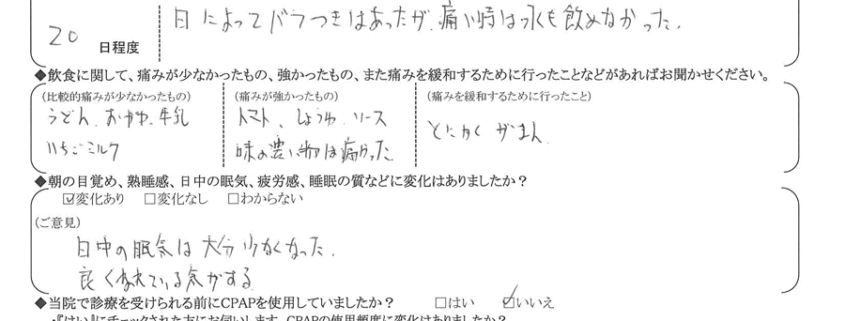 日によってバラつきはあったが、痛い時は水も飲めなかった.
20 日程度
◆飲食に関して、痛みが少なかったもの、強かったもの、また痛みを緩和するために行ったことなどがあればお聞かせください。
(比較的痛みが少なかったもの) (痛みが強かったもの) (痛みを緩和するために行ったこと)
うどん、おかゆ、牛乳 トマト、しょうゆ、ソース とにかく がまん
いちごミルク 味の濃い物は痛かった
◆朝の目覚め、熟睡感、日中の眠気、疲労感、睡眠の質などに変化はありましたか？
☑変化あり □変化なし □わからない
(ご意見)
日中の眠気は大分少なくなった.
良くねれている気がする
◆当院で診療を受けられる前にCPAPを使用していましたか？ □はい ☑いいえ
・『はい』にチェックされた方にお伺いします。CPAPの使用頻度に変化はありましたか？